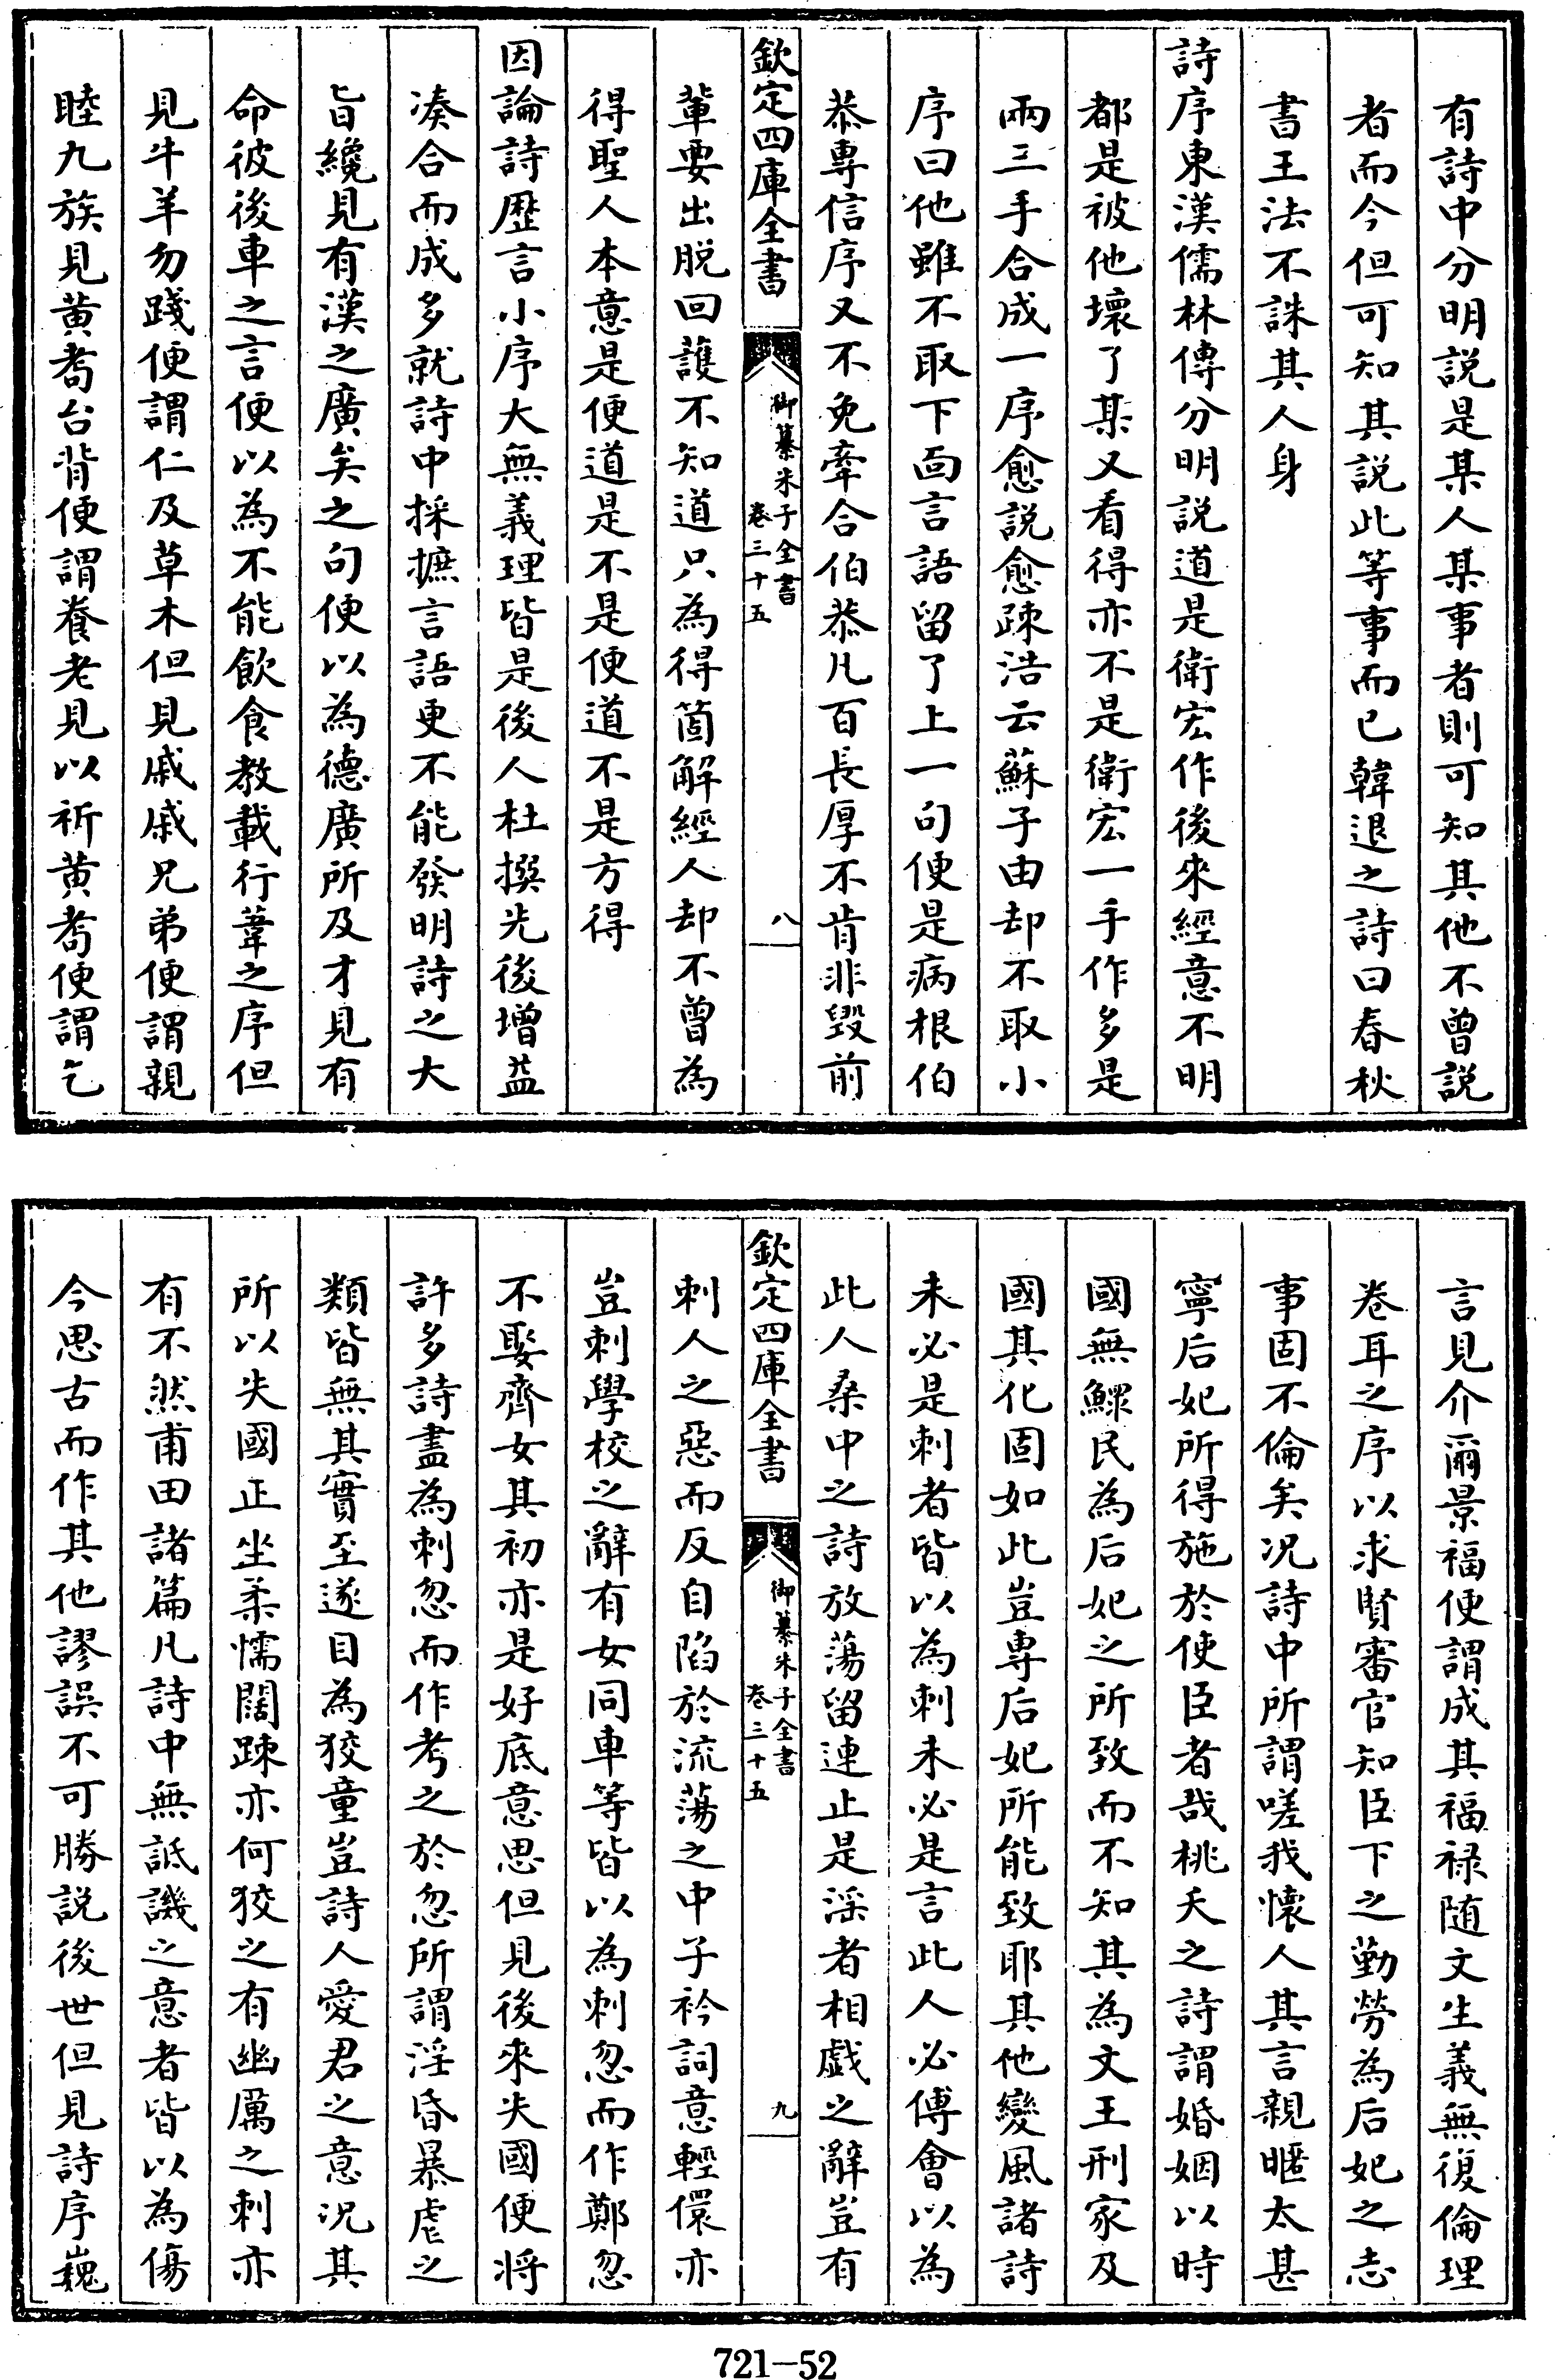 有詩中分明説是某人某事者則可知其他不曾説
者而今但可知其説此等事而已韓退之詩曰春秋
書王法不誅其人身
詩序東漢儒林傳分明説道是衛宏作後來經意不明
都是被他壞了某又看得亦不是衛宏一手作多是
兩三手合成一序愈説愈疎浩云蘇子由却不取小
序曰他雖不取下面言語留了上一句便是病根伯
恭專信序又不免牽合伯恭凡百長厚不肯非毀前
欽定四庫全書
御纂朱子全書
卷三十五
八
輩要出脱回護不知道只為得箇解經人却不曾為
得聖人本意是便道是不是便道不是方得
因論詩歴言小序大無義理皆是後人杜撰先後增益
湊合而成多就詩中採摭言語更不能發明詩之大
旨纔見有漢之廣矣之句便以為德廣所及才見有
命彼後車之言便以為不能飲食教載行葦之序但
見牛羊勿踐便謂仁及草木但見戚戚兄弟便謂親
睦九族見黄耇台背便謂養老見以祈黄耇便謂乞
言見介爾景福便謂成其福祿随文生義無復倫理
卷耳之序以求賢審官知臣下之勤勞為后妃之志
事固不倫矣况詩中所謂嗟我懐人其言親暱太甚
寧后妃所得施於使臣者哉桃夭之詩謂婚姻以時
國無鰥民為后妃之所致而不知其為文王刑家及
國其化固如此豈專后妃所能致耶其他變風諸詩
未必是刺者皆以為刺未必是言此人必傅會以為
此人桑中之詩放蕩留連止是淫者相戯之辭豈有
欽定四庫全書
御纂朱子全書
卷三十五
九
刺人之惡而反自陷於流蕩之中子衿詞意輕儇亦
豈刺學校之辭有女同車等皆以為刺忽而作鄭忽
不娶齊女其初亦是好底意思但見後來失國便将
許多詩盡為刺忽而作考之於忽所謂淫昏暴虐之
類皆無其實至遂目為狡童豈詩人愛君之意况其
所以失國正坐柔懦闊疎亦何狡之有幽厲之刺亦
有不然甫田諸篇凡詩中無詆譏之意者皆以為傷
今思古而作其他謬誤不可勝説後世但見詩序巍
721—52